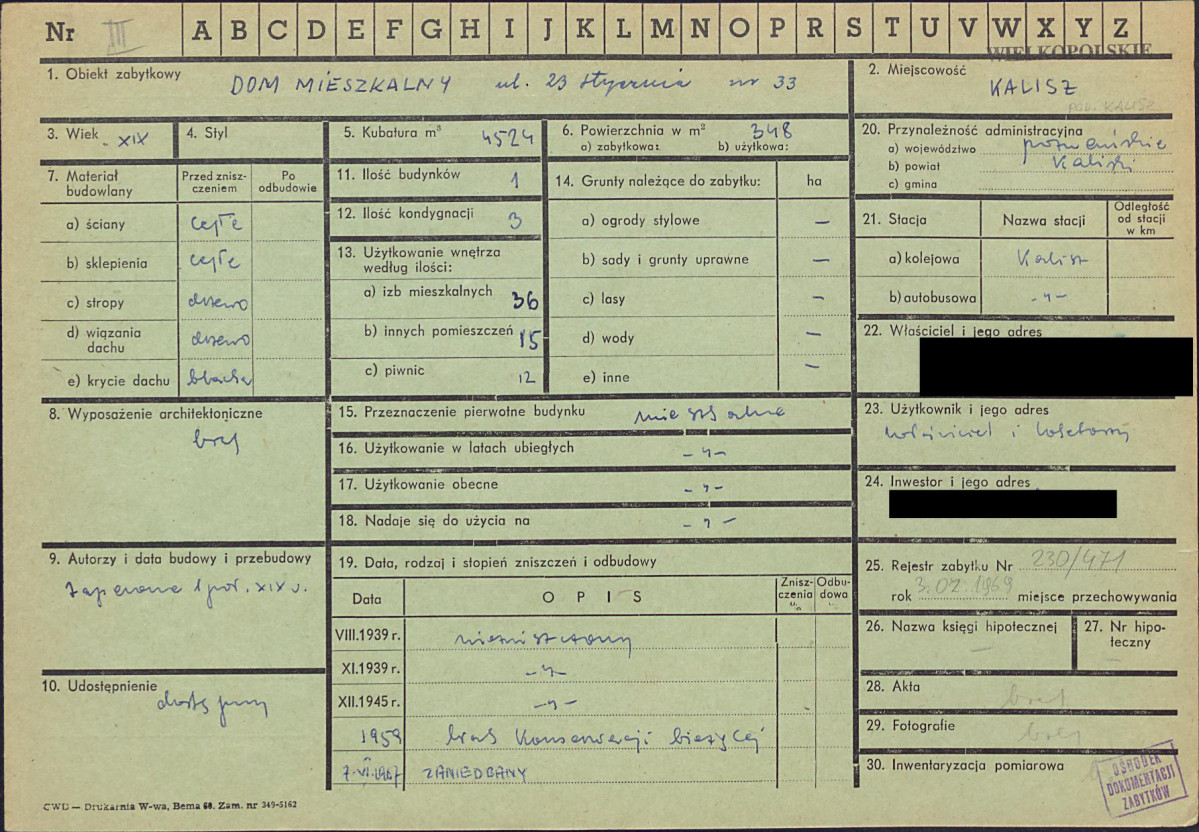 Nr III A B C D E F G H I J K L M N O P R S T U V W X Y Z
WIELKOPOLSKIE
1. Obiekt zabytkowy DOM MIESZKALNY ul. 23 Stycznia nr 33
2. Miejscowość
KALISZ
pow. KALISZ
3. Wiek
XIX
4. Styl
5. Kubatura m³ 4524
6. Powierzchnia w m² 348
a) zabytkowa: b) użytkowa:
20. Przynależność administracyjna
a) województwo poznańskie
b) powiat Kaliski
c) gmina
7. Materiał budowlany
Przed znisz-
czeniem
Po
odbudowie
a) ściany cegła
b) sklepienia cegła
c) stropy drzewo
d) wiązania
dachu drzewo
e) krycie dachu blacha
11. Ilość budynków 1
12. Ilość kondygnacji 3
13. Użytkowanie wnętrza
według ilości:
a) izb mieszkalnych 36
b) innych pomieszczeń 15
c) piwnic 12
14. Grunty należące do zabytku: ha
a) ogrody stylowe —
b) sady i grunty uprawne —
c) lasy —
d) wody —
e) inne —
21. Stacja Nazwa stacji
Odległość
od stacji
w km
a) kolejowa Kalisz
b) autobusowa -"-
22. Właściciel i jego adres
8. Wyposażenie architektoniczne
brak
15. Przeznaczenie pierwotne budynku mieszkalne
16. Użytkowanie w latach ubiegłych -"-
17. Użytkowanie obecne -"-
18. Nadaje się do użycia na -"-
23. Użytkownik i jego adres
właściciel i lokatorzy
24. Inwestor i jego adres
9. Autorzy i data budowy i przebudowy
zapewne I poł. XIX w.
19. Data, rodzaj i stopień zniszczeń i odbudowy
Data OPIS
Znisz-
czenia
%
Odbu-
dowa
VIII.1939 r. niezniszczony
XI.1939 r. -"-
XII.1945 r. -"-
1959 brak konserwacji bieżącej
7.VI.1967 ZANIEDBANY
25. Rejestr zabytku Nr 230/471
rok 3.02.1969 miejsce przechowywania
26. Nazwa księgi hipotecznej
—
27. Nr hipo-
teczny
10. Udostępnienie
dostępny
28. Akta
brak
29. Fotografie
brak
30. Inwentaryzacja pomiarowa
OŚRODEK
DOKUMENTACJI
ZABYTKÓW
CWD — Drukarnia W-wa, Bema 60. Zam. nr 349-5162